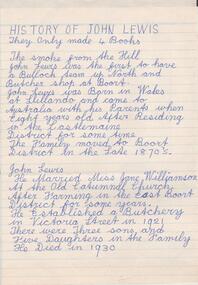 HISTORY OF JOHN LEWIS
They Only made 4 Books
The smoke from the Hill
John Lewis was the first to have
a Bullock team up North and
Butcher shop at Boort.
John Lewis was Born in Wales
at Llilando and came to
Australia with his Parents when
Eight years old After Residing
in the Castlemaine
District for some time
The Family moved to Boort
District in the Late 1870s.
John Lewis
He Married Miss Jane Williamson
At the Old Catumnal Church
After Farming in the East Boort
District for some years.
He Established a Butchery
in Victoria Street in 1921
There were Three sons, and
Five Daughters in the Family
He Died in 1930